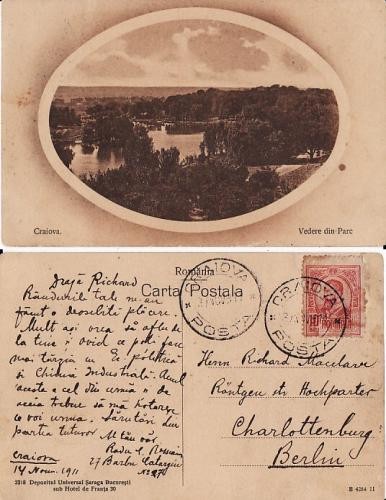 Craiova.
Vedere din Parc
România
Carta Postala
CRAIOVA
POSTA
CRAIOVA
POSTA
Dragă Richard
Rândurile tale m-au
făcut o deosebită plăcere.
Mult aș vrea să aflu de
la tine și
mai târziu Ec. politică
și Chimia Industrială. Anul
acesta e cel din urmă
trebui să mă hotăresc
voi urma. Sărutări din
partea tuturor
Al tău văr
Radu
27 Barbu Catargiu
Craiova
14 Noem. 1911
Herrn Richard
Röntgen str Hochparter
Charlottenburg
Berlin
3218 Depozitul Universal Șaraga București
sub Hotel de Franța 30
B 4284 11